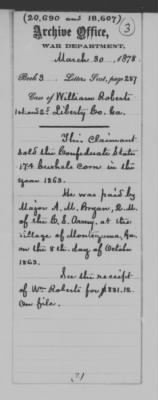 (20,690 and 18,607)
3
Archive Office,
WAR DEPARTMENT,
March 30, 1878.
Book 3. Letters Sent, page 287
Case of William Roberts
Liberty Co. Ga.
This Claimant
sold the Confederate States
174 bushels corn in the
year 1863.
He was paid by
Major A. M. Bryan, Q.M.
of the C.S. Army, at the
village of Montezuma, Ga.
on the 8th day of October
1863.
See the receipt
of Wm Roberts for $331.12.
On file.